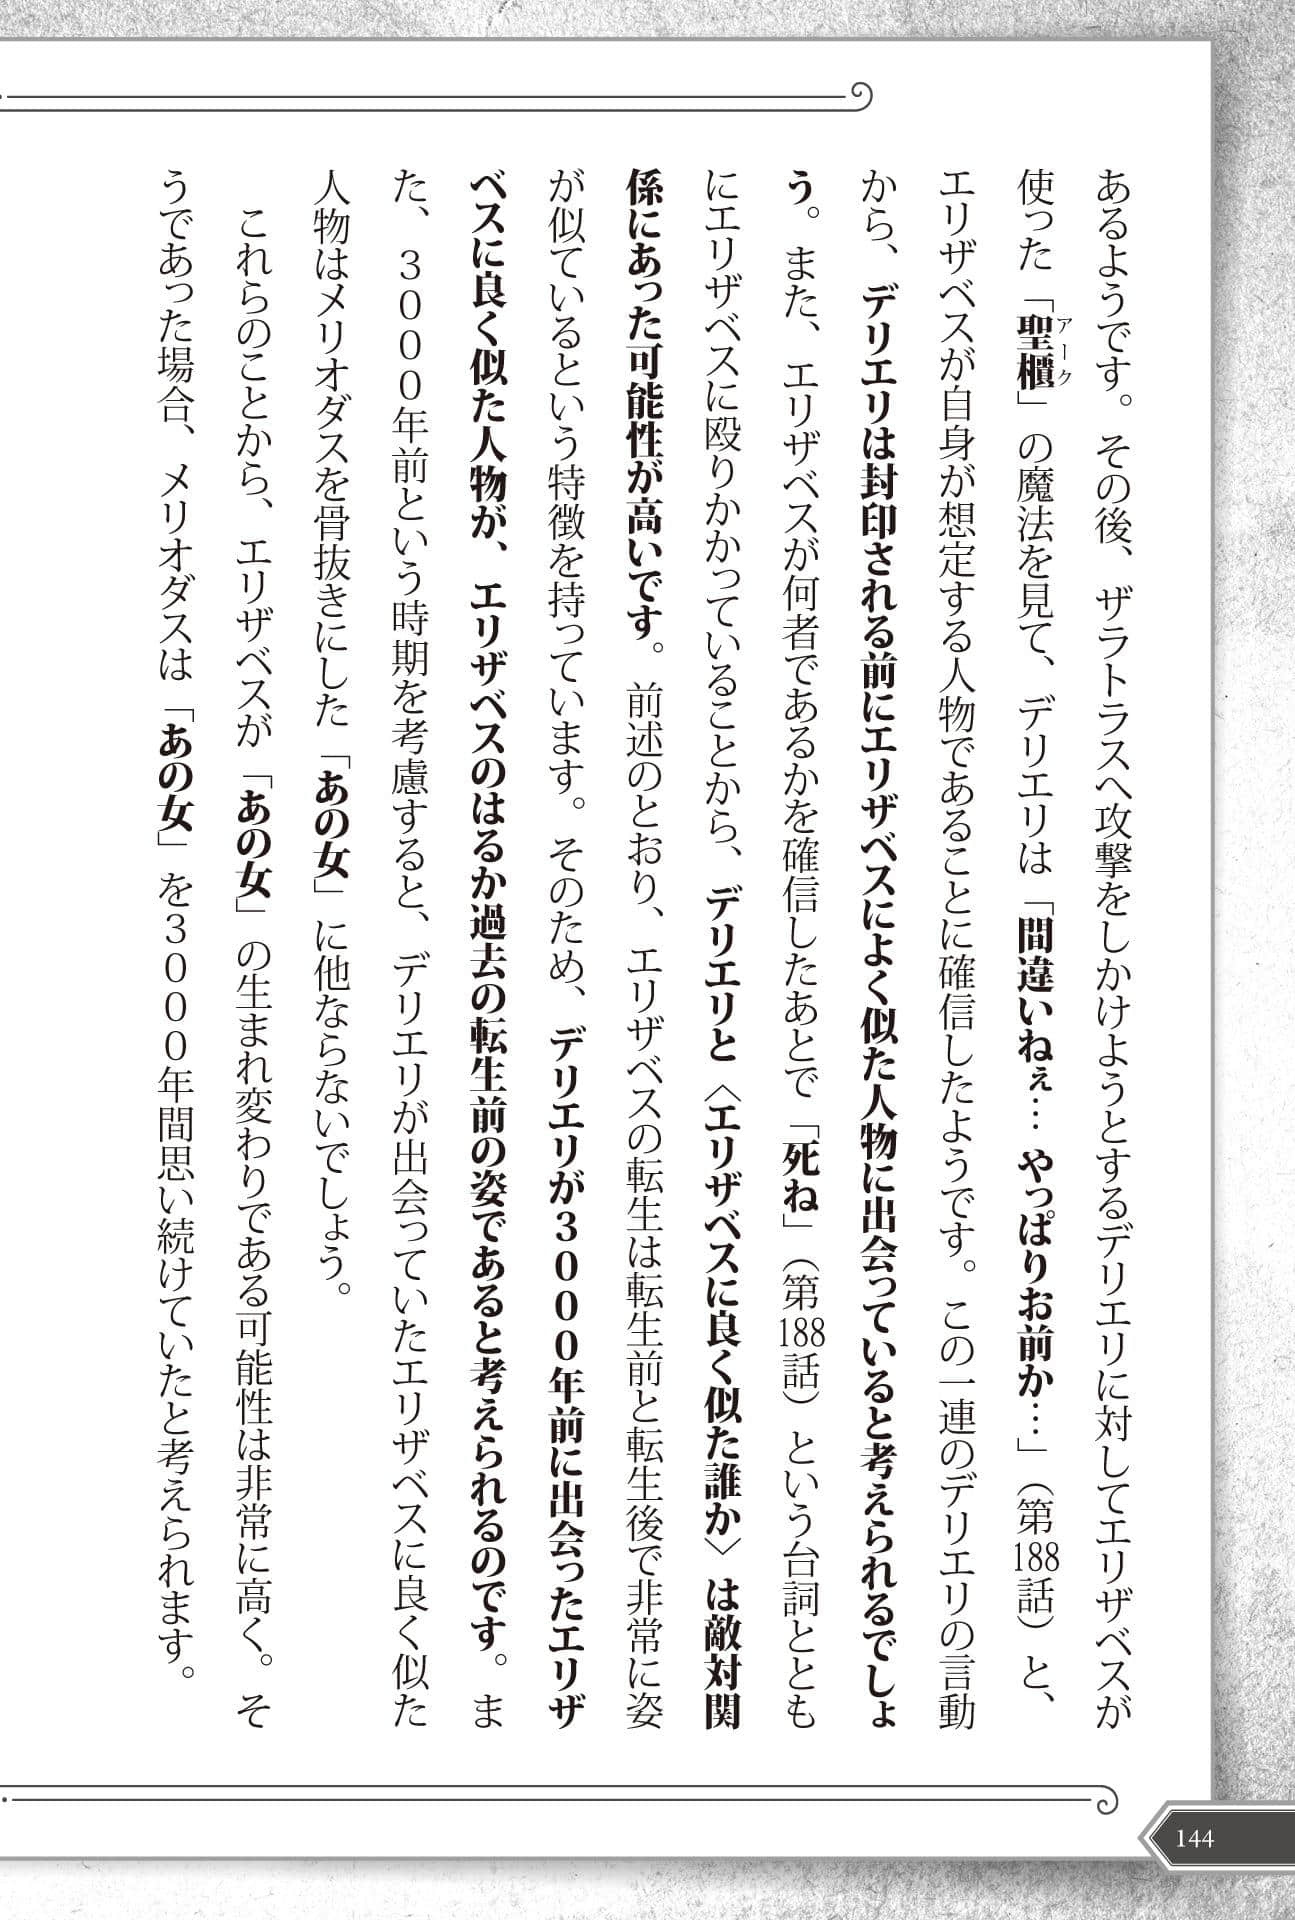 あるようです。その後、ザラトラスへ攻撃をしかけようとするデリエリに対してエリザベスが
使った「聖櫃」の魔法を見て、デリエリは「間違いねぇ… やっぱりお前か…」（第188話）と、
アーク
エリザベスが自身が想定する人物であることに確信したようです。この一連のデリエリの言動
から、デリエリは封印される前にエリザベスによく似た人物に出会っていると考えられるでしょ
う。また、エリザベスが何者であるかを確信したあとで「死ね」（第188話）という台詞ととも
にエリザベスに殴りかかっていることから、デリエリと〈エリザベスに良く似た誰か〉は敵対関
係にあった可能性が高いです。前述のとおり、エリザベスの転生は転生前と転生後で非常に姿
が似ているという特徴を持っています。そのため、デリエリが３０００年前に出会ったエリザ
ベスに良く似た人物が、エリザベスのはるか過去の転生前の姿であると考えられるのです。ま
た、３０００年前という時期を考慮すると、デリエリが出会っていたエリザベスに良く似た
人物はメリオダスを骨抜きにした「あの女」に他ならないでしょう。
これらのことから、エリザベスが「あの女」の生まれ変わりである可能性は非常に高く。そ
うであった場合、メリオダスは「あの女」を３０００年間思い続けていたと考えられます。
144